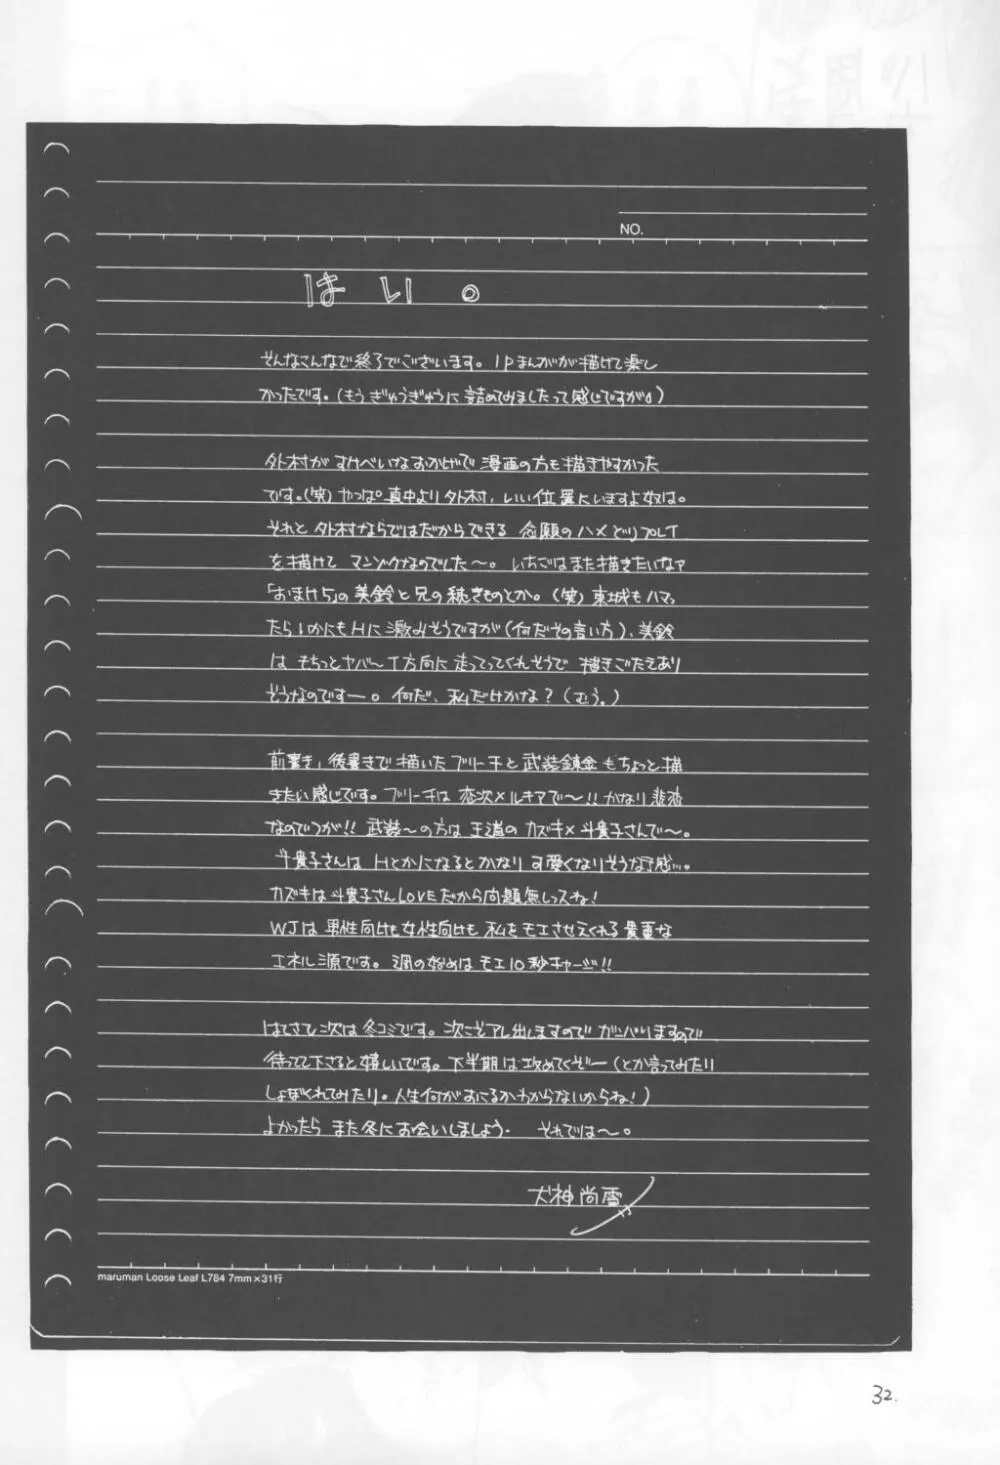 NO.
はい。
そんなこんなで終了でございます。1Pまんがが描けて楽し
かったです。(もうぎゅうぎゅうに詰めてみましたって感じですが)
外村がすけべいなおかげで漫画の方も描きやすかった
です。(笑)やっぱ真中より外村、いい位置にいますよ奴は。
それと外村ならではだからできる念願のハメどりプレイ
を描けてマンゾクなのでした〜。いちごはまた描きたいなァ
「おまけ5」の美鈴と兄の続きものとか。(笑)東城もハマっ
たらいかにもHに激みそうですが(何だその言い方)、美鈴
はもちっとヤバ〜イ方向に走ってってくれそうで描きごたえあり
そうなのですー。何だ、私だけかな?(むう。)
前書き、後書きで描いたブリーチと武装錬金もちょっと描
きたい感じです。ブリーチは恋次×ルキアで〜!!かなり悲恋
なのでつが!!武装〜の方は王道のカズキ×斗貴子さんで〜。
斗貴子さんはHとかになるとかなり可愛くなりそうな予感…。
カズキは斗貴子さんLOVEだから問題無しってね!
WJは男性向けも女性向けも私をモエさせてくれる貴重な
エネル源です。週の始めはモエ10秒チャージ!!
はてさて次は冬コミです。次こそアレ出しますのでガンバりますので
待ってて下さると嬉しいです。下半期は攻めてくぞー(とか言ってみたり
しょぼくれてみたり。人生何がおこるかわからないからね!)
よかったらまた冬にお会いしましょう。それでは〜。
犬神尚雪
maruman Loose Leaf L784 7mm×31行
32.